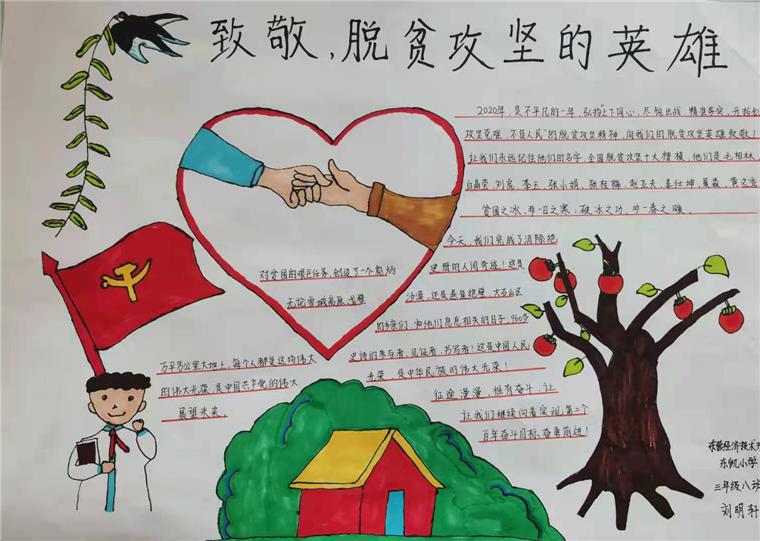 致敬,脱贫攻坚的英雄
2020年,是不平凡的一年,弘扬"上下同心、尽锐出战、精准务实、开拓创
攻坚克难、不负人民"的脱贫攻坚精神,向我们的脱贫攻坚英雄致敬!
让我们永远记住他们的名字,全国脱贫攻坚十大楷模,他们是毛相林、
白晶莹、刘虎、李玉、张小娟、张桂梅、赵亚夫、姜仕坤、夏森、黄文秀
贫困之冰,非一日之寒,破冰之功,非一春之暖。
今天,我们完成了消除绝
对贫困的艰巨任务,创造了一个彪炳
史册的人间奇迹!这是
无论雪域高原、戈壁
沙漠,还是悬崖绝壁、大石山区
的乡亲们,和他们息息相关的日子,960多
万平方公里大地上,每个人都是这场伟大
史诗的参与者、见证者、书写者!这是中国人民
的伟大光荣,是中国共产党的伟大
光荣,是中华民族的伟大光荣!
展望未来,
征途漫漫,惟有奋斗,让
让我们继续向着实现第二个
百年奋斗目标,奋勇前进!
经济技术开
东凯小学
三年级八班
刘明轩